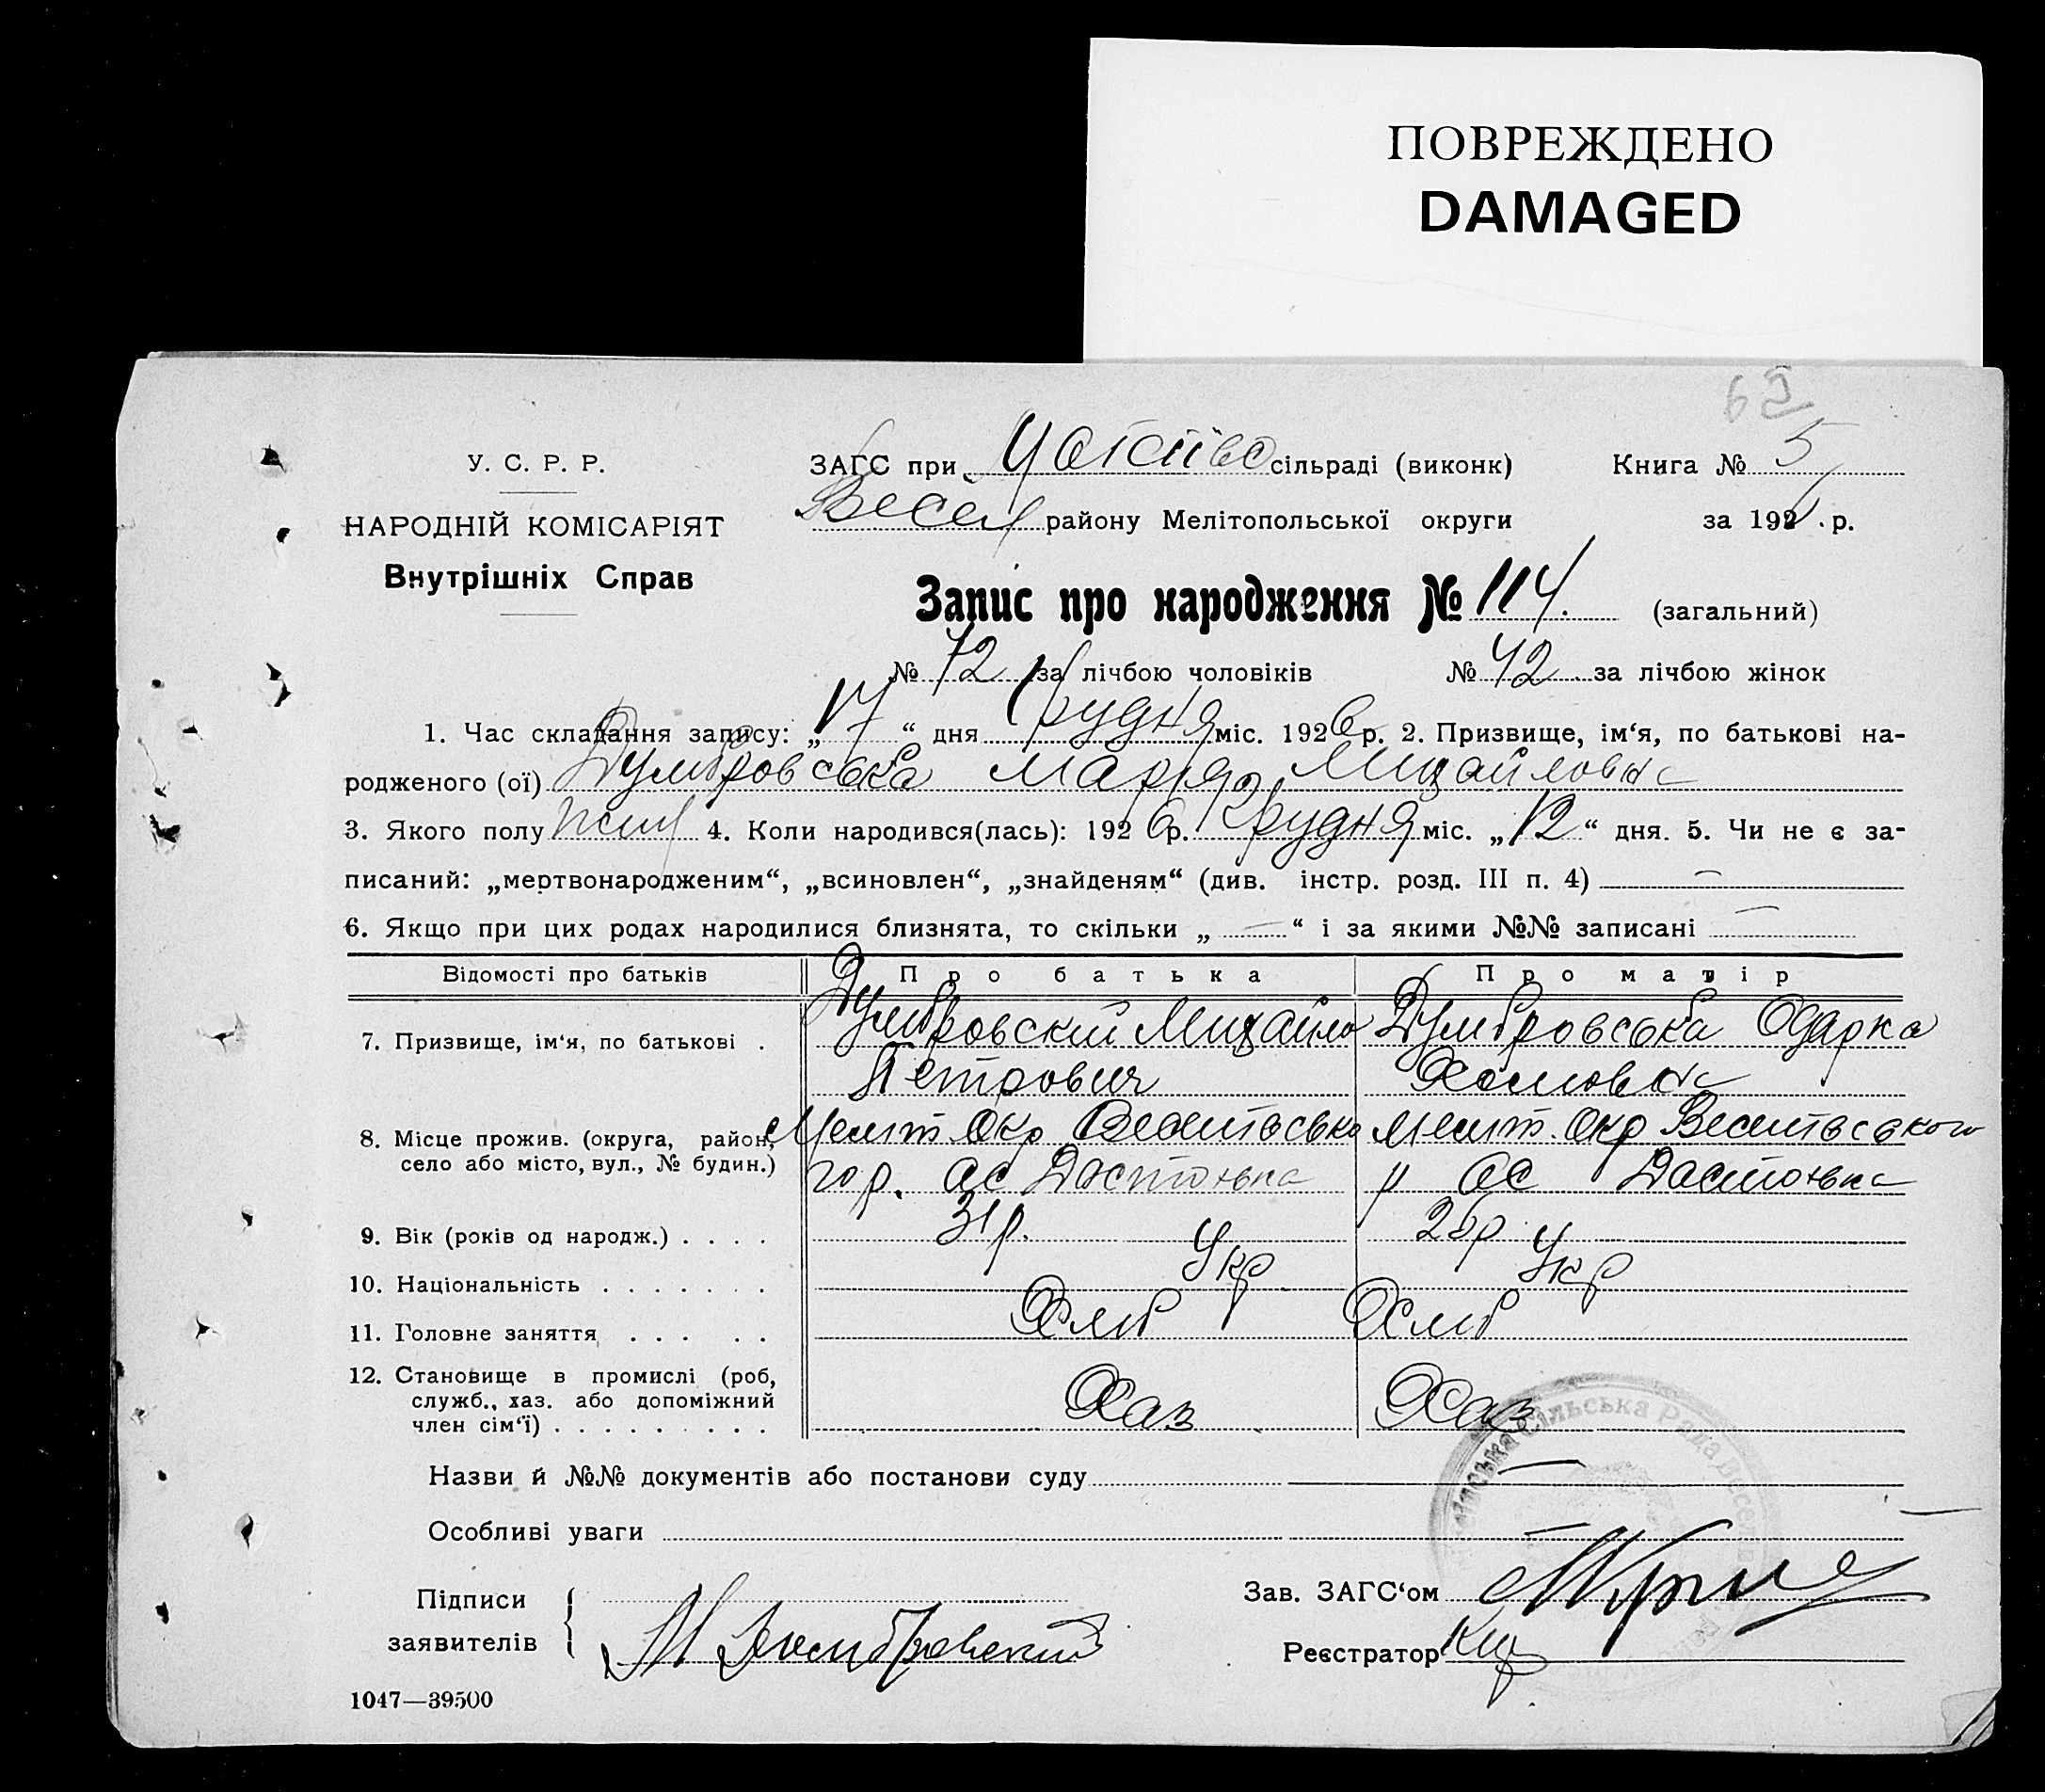 ПОВРЕЖДЕНО
DAMAGED
У. С. Р. Р.
НАРОДНІЙ КОМІСАРІЯТ
Внутрішніх Справ
ЗАГС при сільраді (виконк)
Книга № 5
Весел району Мелітопольської округи
за 192 р.
Запис про народження № 114. (загальний)
№ 72 за лічбою чоловіків № 42 за лічбою жінок
1. Час складання запису: „17“ дня Грудня міс. 1926 р. 2. Призвище, ім‘я, по батькові на-
родженого (ої) Думбровська Марія Михайловна
3. Якого полу жін 4. Коли народився(лась): 1926 р. Грудня міс. „12“ дня. 5. Чи не є за-
писаний: „мертвонародженим“, „всиновлен“, „знайденям“ (див. інстр. розд. III п. 4) —
6. Якщо при цих родах народилися близнята, то скільки „—“ і за якими №№ записані —
Відомості про батьків Про батька Про матір
7. Призвище, ім‘я, по батькові . Думбровский Михайло Думбровська Одарка
Петрович Хомовна
8. Місце прожив. (округа, район, Меліт. Окр Веселівсько Меліт. Окр Веселівського
село або місто, вул., № будин.) го р.
9. Вік (років од народж.) . . . . 31 р. 26 р
10. Національність . . . . . . . Укр Укр
11. Головне заняття . . . . . Хліб Хліб
12. Становище в промислі (роб,
служб., хаз. або допоміжний
член сім‘ї) . . . . . . . . . Хаз Хаз
Назви й №№ документів або постанови суду —
Особливі уваги
Підписи
заявителів
М Домбровский
Зав. ЗАГС‘ом
Реєстратор
Сільська Рада Весел
1047—39500